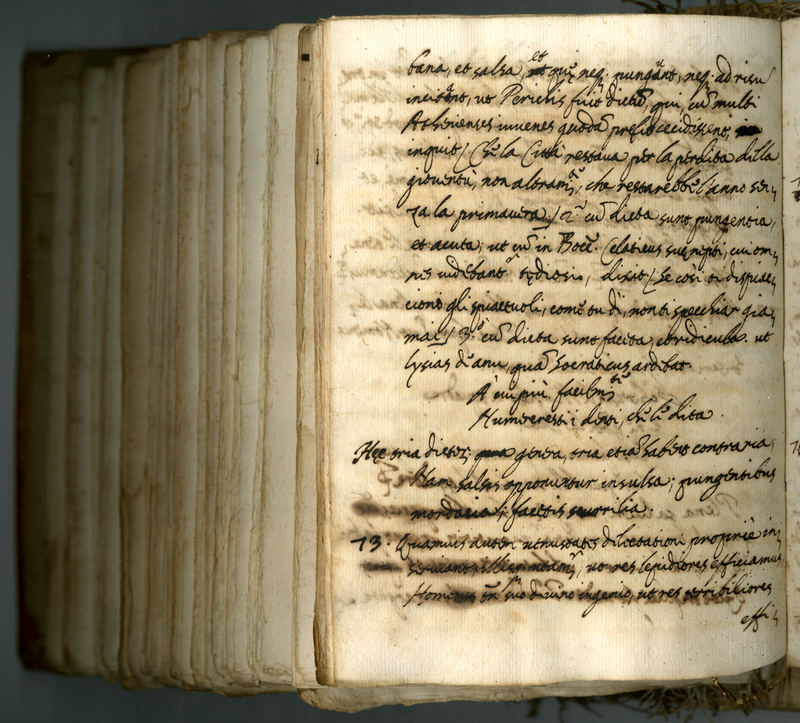 bana, et salsa, et quę neq. pungūnt, neq. ad risū
incitēnt, ut Periclis fuit dictū, qui, cū multi
Athenienses iuuenes quodā prelio cecidissent,
inquit / Che la Città restaua per la perdita della
giouentù, non altramte, che restarebbe l'anno sen-
za la primauera / 2.º cū dicta sunt pungentia,
et acuta; ut cū in Bocc. suę nepti, cui om-
nes uidebant tędiosi, dixit / Se così ti dispiac-
ciono gli spiaceuoli, come tu dì, non ti specchiar gia-
mai / 3.º cū dicta sunt faceta, et ridicula. ut
Lysias de anu, quā Socraticus ardebat.
A cui più facilmte
Numeresti i denti, che le dita.
Hęc tria dictor. genera, tria etiā habent contraria
Nam salsis opponuntur insulsa; pungentibus
mordacia; facetis scurrilia.
13. Quamuis autem uenustates delectationi propriè in-
seruiant, ut res lepidiores efficiamus
Homerus tn̄ suo diuino ingenio, ut res terribiliores
effi-